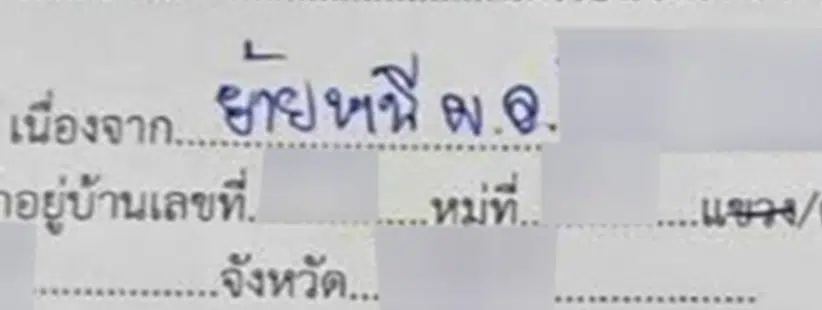 เนื่องจาก ย้ายหนี ผ.อ.
อยู่บ้านเลขที่ หมู่ที่ แขวง/
จังหวัด